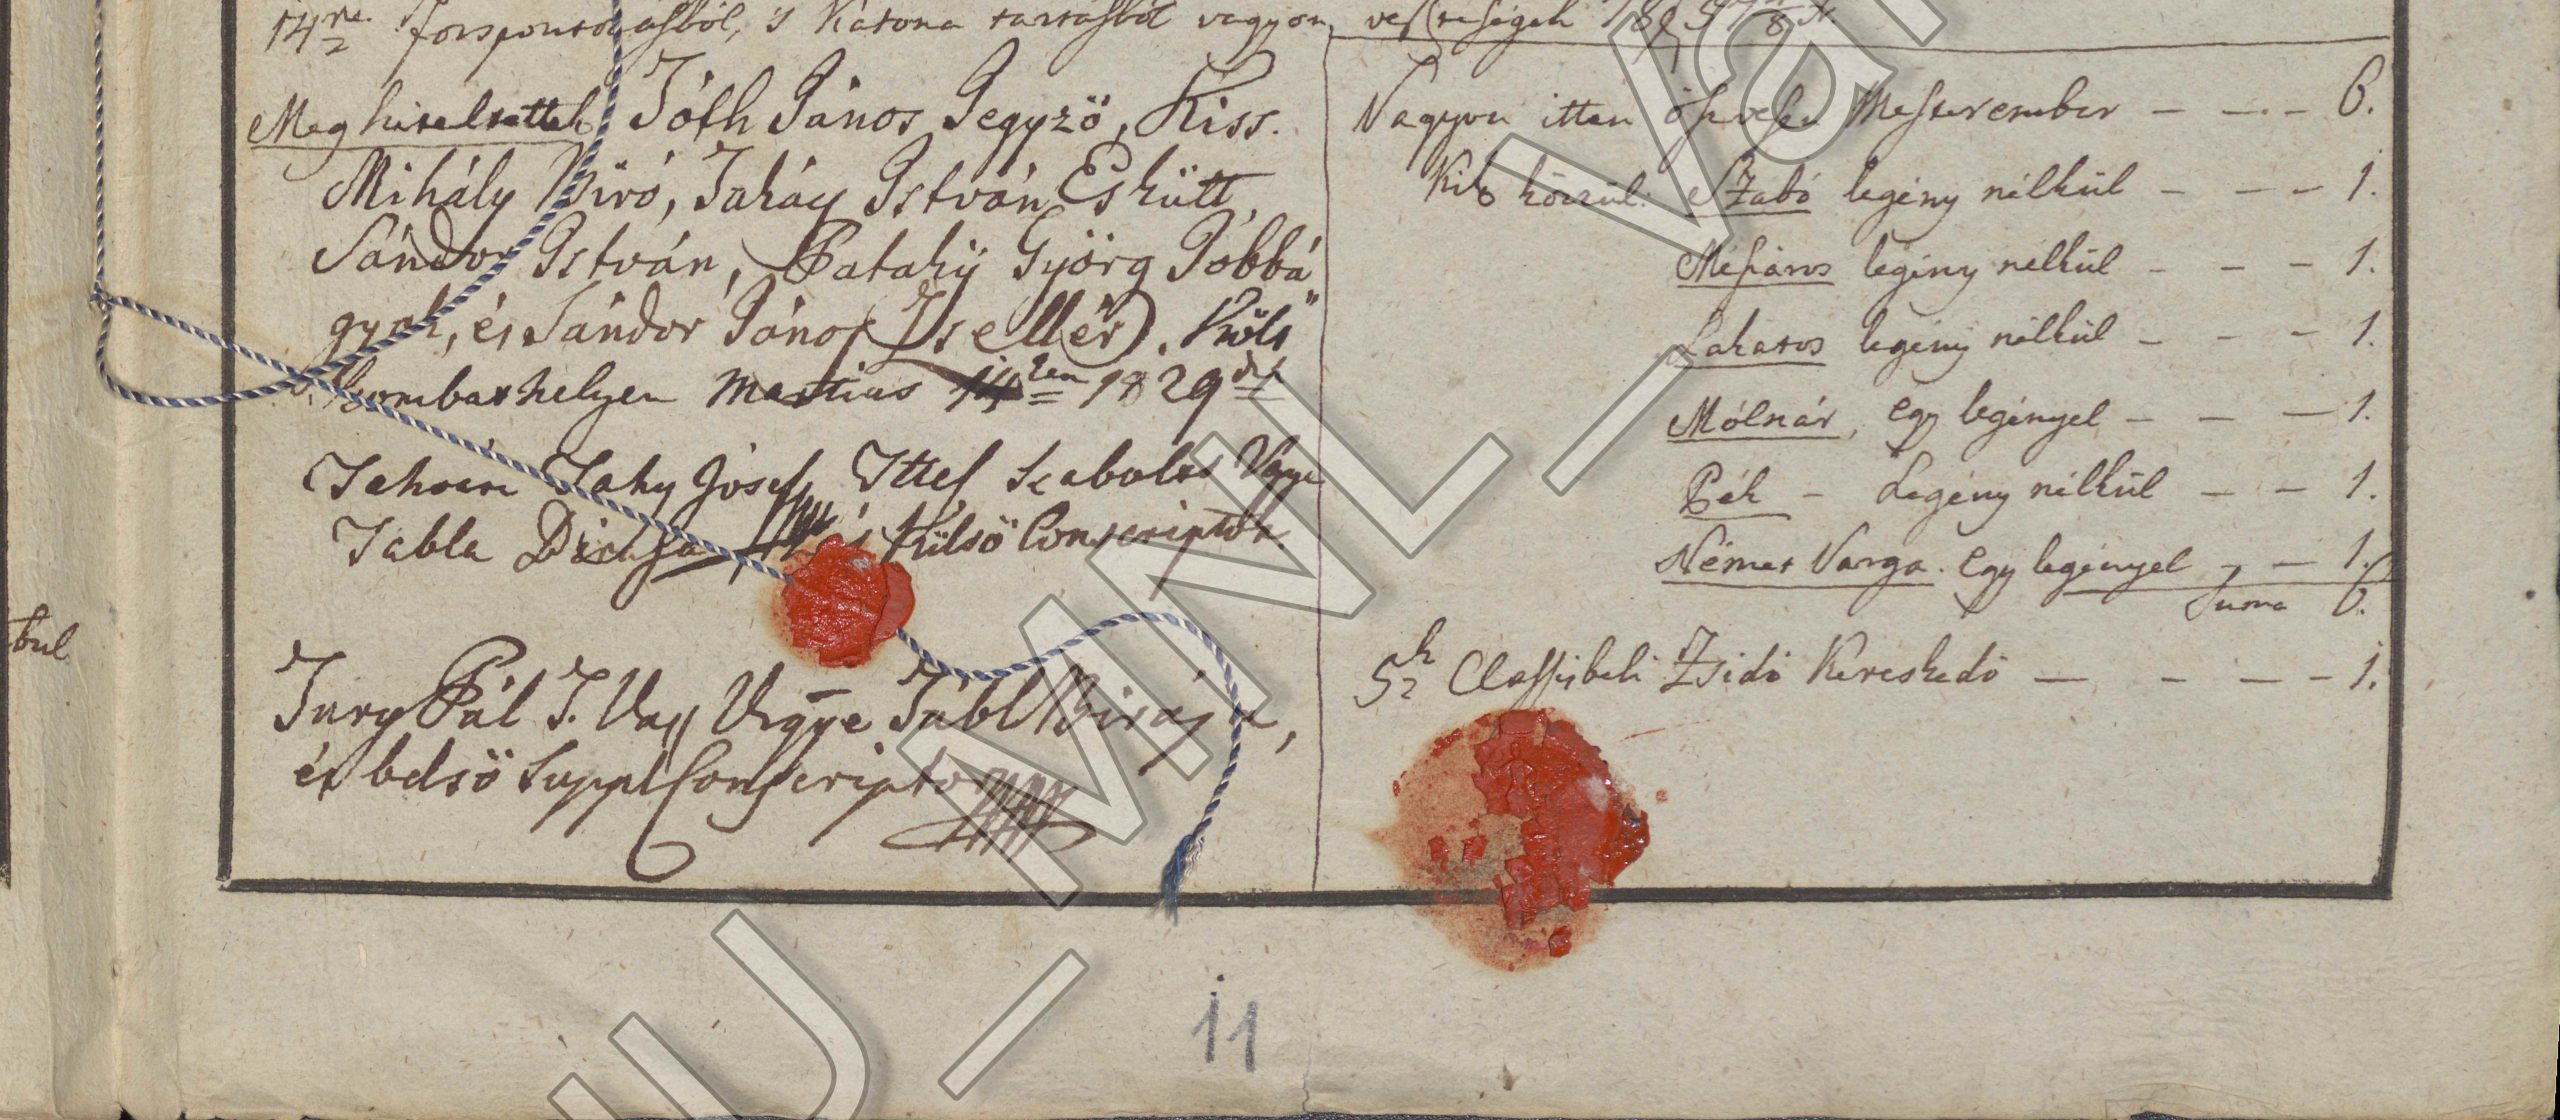 14re Forspontozásból, 's Katona tartásból vagyon veszteségek
Meg hiteltettek Tóth János Jegyző, Kiss
Mihály Biró, Takáy István Eskütt,
Sándor István, Patakÿ Györg Jobbá"
gyok, és Sándor János Zsellér). Köls
Szombathelyen Martius 14ken 1829dik
Jósef Ittes Szabolts Vgye
Tabla és Külső Conscriptor.
Jury Pál T. Vas Vrgye Tábl Birája,
és belső Suppl Conscriptor
Vagyon itten öszvesen Mesterember – – – 6.
Kik közzül: Szabó legény nélkül – – – 1.
Mészáros legény nélkül – – – 1.
Lakatos legény nélkül – – – 1.
Mólnár, egy legényel – – – 1.
Pék – Legény nélkül – – 1.
Német Varga. egy legényel – – 1.
Suma 6.
5k Classisbeli Zsidó Kereskedő – – – – 1.
bul
11
HU_MNL_Va